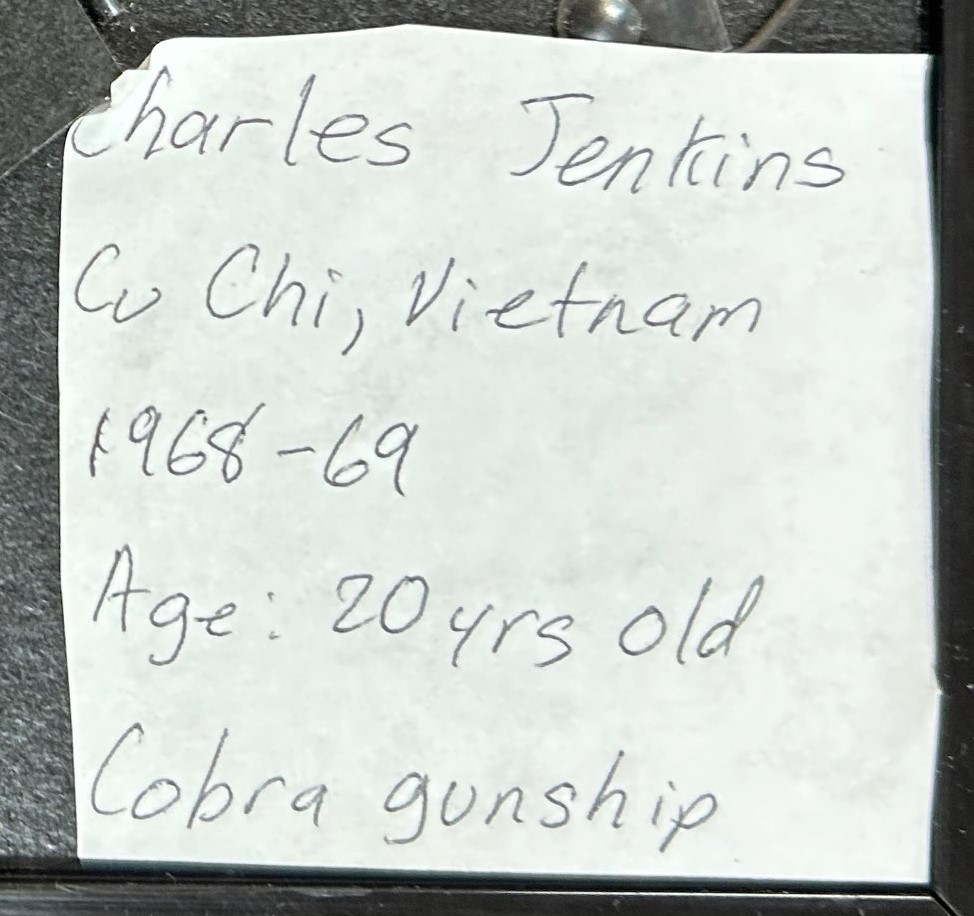 Charles Jenkins
Cu Chi, Vietnam
1968-69
Age: 20 yrs old
Cobra gunship